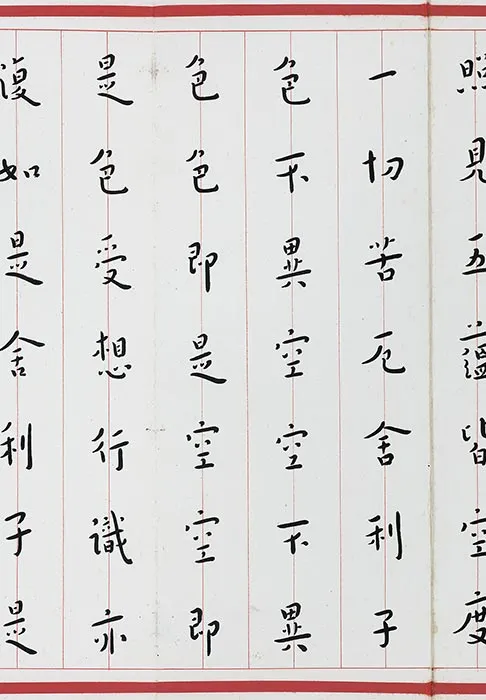 照見五蘊皆空度
一切苦厄舍利子
色不異空空不異
色色即是空空即
是色受想行識亦
復如是舍利子是